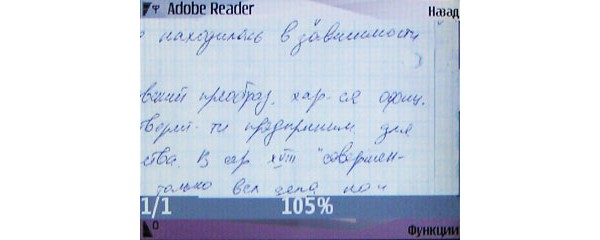 Adobe Reader Назад
находилось в зависимости
)
вский преобраз. хар-ся офиц.
предприним. для
ства. В сер XVIII "совершен-
только все дела по и
1/1 105%
Функции